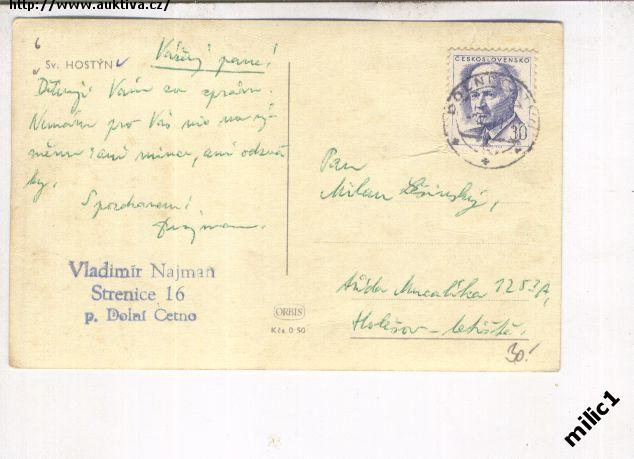 http://www.auktiva.cz/
6
Sv. HOSTÝN
Vážený pane!
Děkuji Vám za zprávu.
Nemám pro Vás nic na vý-
měnu ani mince, ani odzná-
ky.
S pozdravem!
Najman.
Vladimír Najman
Strenice 16
p. Dolní Cetno
ČESKOSLOVENSKO
30
Pan
Milan
třída 1283A,
Holešov - letiště.
ORBIS
Kčs 0 50
30!
milic1